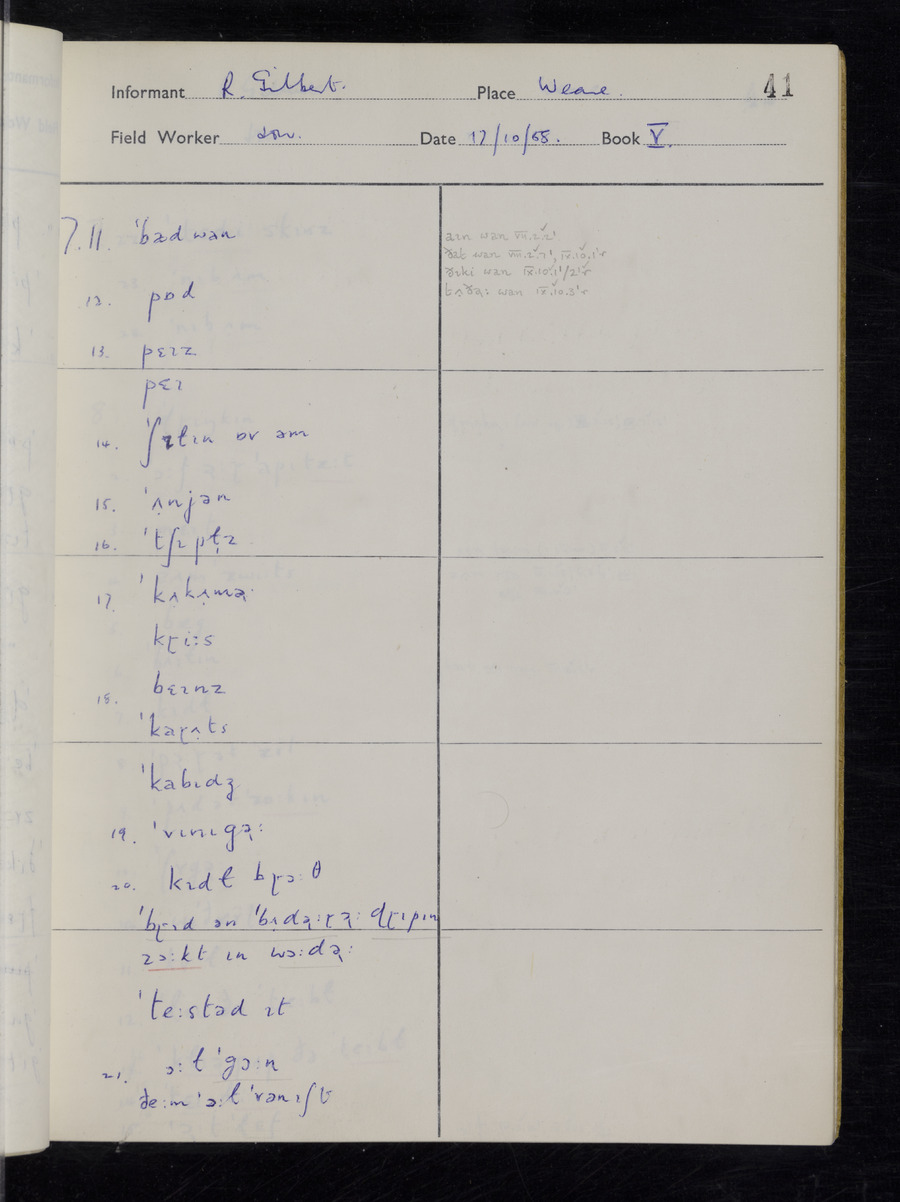 Informant R. Gilbert. Place Weare. 41
Field Worker Date 17/10/ Book V.
7.11. ˈbæd wən
12. pɒd
13. pɛɪz
pɛɪ
14. ˈʃɛɫɪn ɒv əm
15. ˈʌ̣njən
16. ˈtʃɪpɫ̣z
17. ˈkʌ̣kʌ̣mə̣ʳ
kɽiːs
18. bɛɪnz
ˈkaɽʌ̣ts
ˈkabɪdʒ
19. ˈvɪnɪgə̣ː
20. kɪdɫ bɽɔːθ
ˈbɽɛɪd ən ˈbɪdə̣ːɽə̣ː dɽɪpɪn
zɔːkt ɪn wɔːdə̣ː
ˈteːstəd ɪt
21. ɔːɫ ˈgɔːn
ðeːm ˈɔːɫ ˈvənɪʃt
wən VII.2.2'
ðat wən VIII.2.7', IX.10.1'r
ðɪki wən IX.10.1'/2'r
tʌ̣ðə̣ː wən IX.10.3'r